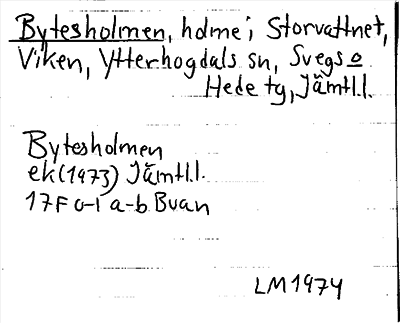 Bytesholmen, holme i Storvattnet,
Viken, Ytterhogdals sn, Svegs o
Hede tg, Jämtl.l.
Bytesholmen
ek (1973) Jämtl.l.
17F c-i a-b Buan
LM 1974